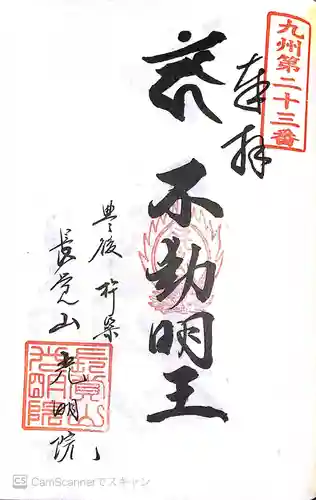 九州第二十三番
奉拝
不動明王
豊後 杵築
長覚山
光明院
長覚山
光明院
CamScannerでスキャン